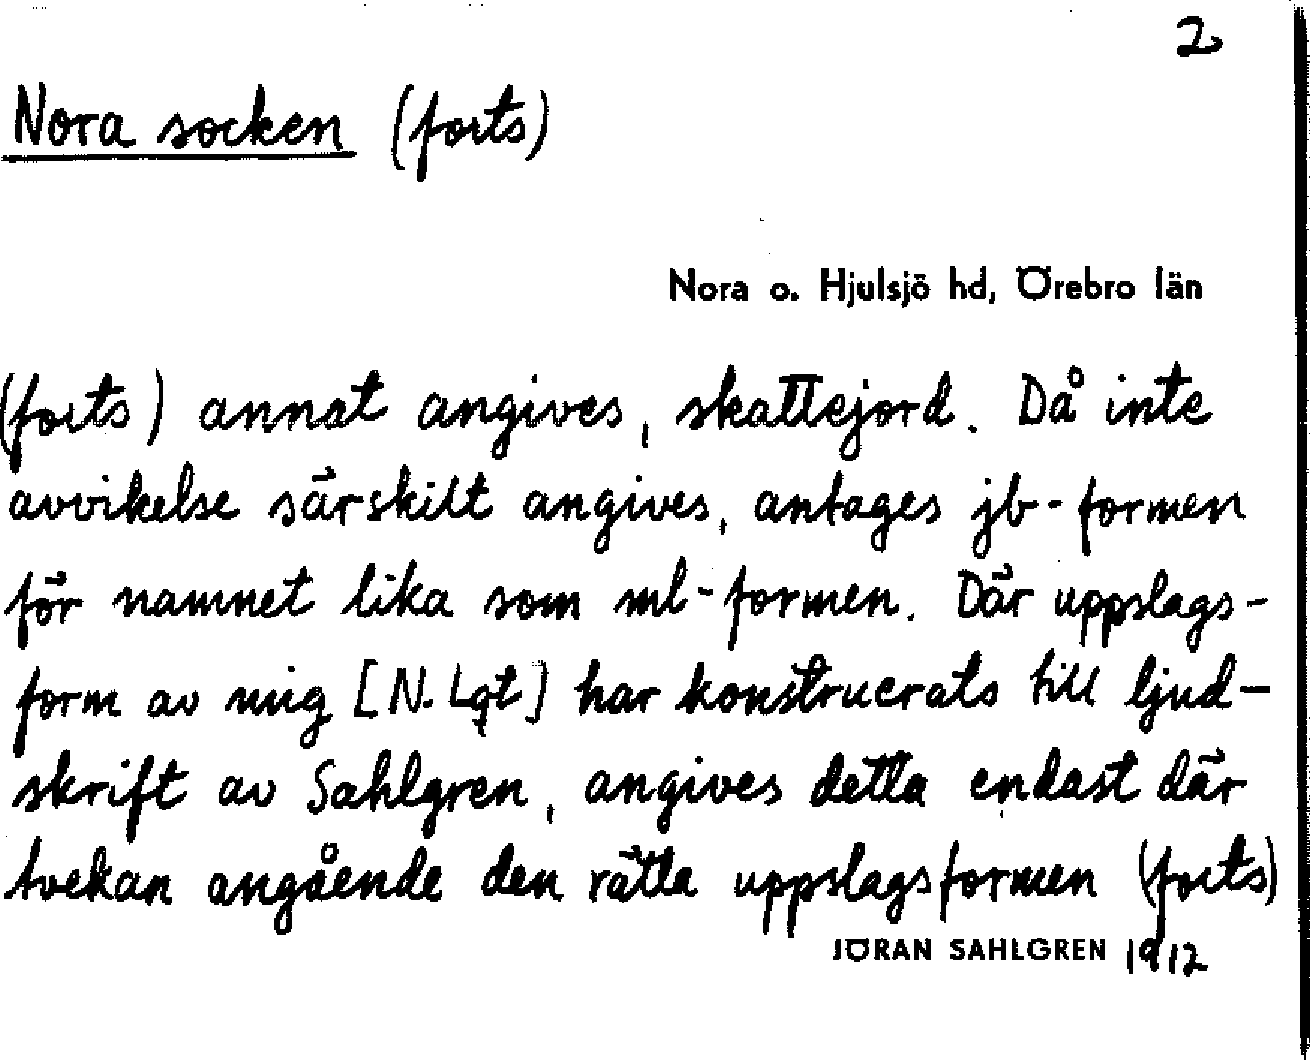 2
Nora socken (forts)
Nora o. Hjulsjö hd, Örebro län
(forts) annat angives, skattejord. Då inte
avvikelse särskilt angives, antages jb-formen
för namnet lika som ml-formen. Där uppslags-
form av mig [N. Lqt] har konstruerats till ljud-
skrift av Sahlgren, angives detta endast där
tvekan angående den rätta uppslagsformen (forts)
JÖRAN SAHLGREN 1912